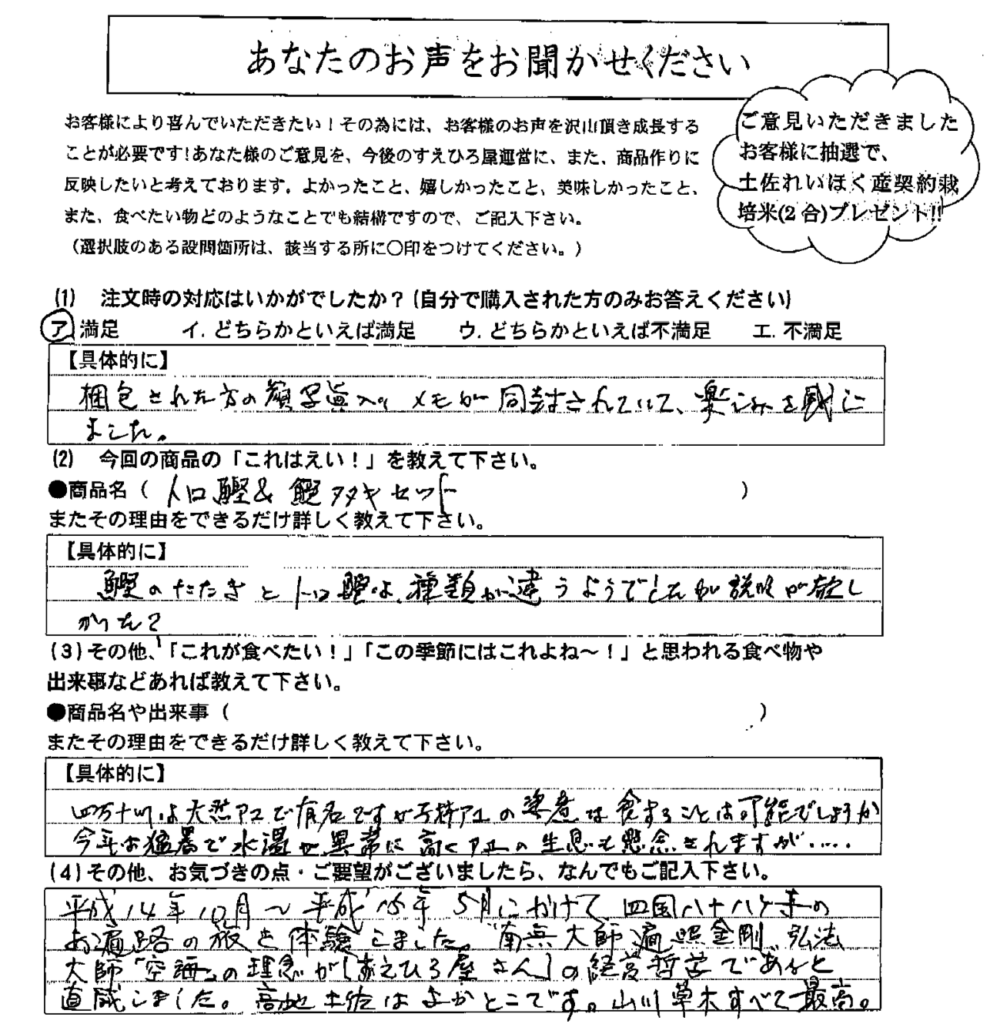 あなたのお声をお聞かせください
お客様により喜んでいただきたい！その為には、お客様のお声を沢山頂き成長する
ことが必要です!あなた様のご意見を、今後のすえひろ屋運営に、また、商品作りに
反映したいと考えております。よかったこと、嬉しかったこと、美味しかったこと、
また、食べたい物どのようなことでも結構ですので、ご記入下さい。
（選択肢のある設問箇所は、該当する所に〇印をつけてください。）
ご意見いただきました
お客様に抽選で、
土佐れいほく産契約栽
培米(2合)プレゼント!!
(1) 注文時の対応はいかがでしたか？(自分で購入された方のみお答えください)
ア 満足 イ. どちらかといえば満足 ウ. どちらかといえば不満足 エ. 不満足
【具体的に】
梱包された方の顔写真入り メモが同封されていて、楽しみを感じ
ました。
(2) 今回の商品の「これはえい！」を教えて下さい。
●商品名（ トロ鰹& 鰹タタキセット ）
またその理由をできるだけ詳しく教えて下さい。
【具体的に】
鰹のたたきとトロ鰹は、種類が違うようでしたが説明が欲し
かった？
(3)その他、「これが食べたい！」「この季節にはこれよね～！」と思われる食べ物や
出来事などあれば教えて下さい。
●商品名や出来事（ ）
またその理由をできるだけ詳しく教えて下さい。
【具体的に】
四万十川は天然アユで有名ですが アユの姿煮は食することは可能でしょうか
今年は猛暑で水温が異常に高くアユの生息も懸念されますが‥‥
(4)その他、お気づきの点・ご要望がございましたら、なんでもご記入下さい。
平成14年10月～平成15年5月にかけて四国八十八ヶ寺の
お遍路の旅を体験しました。"南無大師遍照金剛"弘法
大師「空海」の理念が「すえひろ屋さん」の経営哲学であると
直感しました。高知 土佐はよかとこです。山川草木すべて最高。